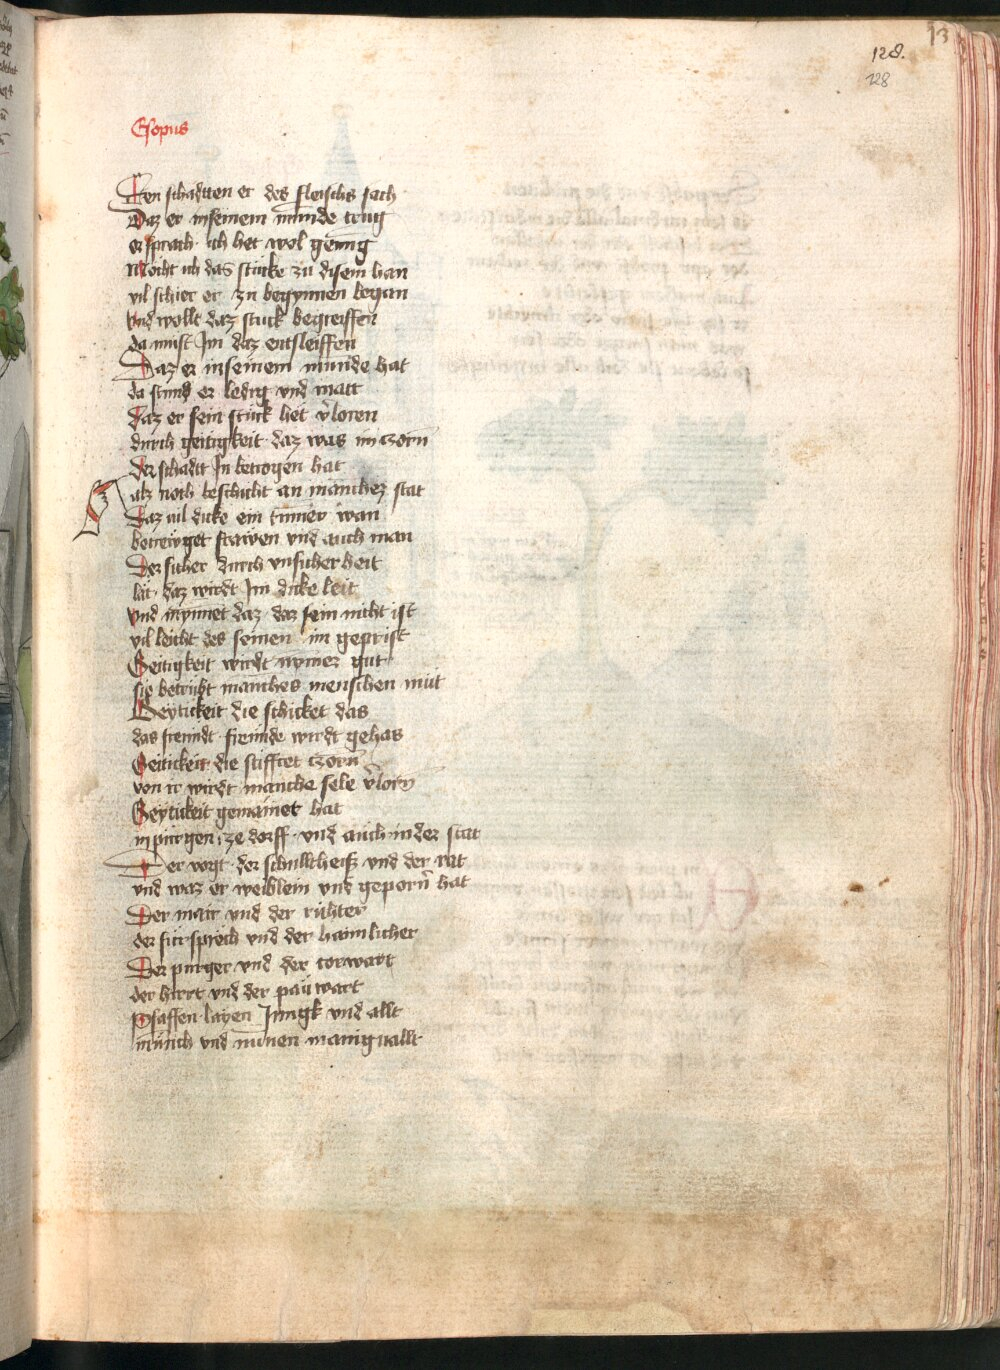 13
128.
128
Esopus
Den schadtten er des fleischs sach
Daz er in seinem munde trug
er sprach ich het wol genug
Mocht ich das stucke zu disem han
vil schier er zu begynnen began
Vnd wollt daz stuck begreiffen
da must Im daz entsleiffen
Daz er in seinem munde hat
da stund er ledig vnd matt
Daz er sein stuck het v̄loren
durch geitigkeit daz was im czorn
Der schadtt In betrogen hat
alz noch beschicht an mancher stat
Daz vil dicke ein tumer wan
betreuget frawen vnd auch man
Der sicher durch vnsicherheit
lat daz wirdt Im dicke leit
Vnd mynnet daz daz sein nicht ist
vil leicht des seinen im geprist
Geitigkeit wirdt nymer gut
sie betrubt manches menschen mut
Geytickeit die schicket das
das freundt freunde wirdt gehas
Geitickeit die stifftet czorn
von ir wirdt manche sele v̄lorn
Geytickeit gemainet hat
in purgen ze dorff vnd auch in der stat
Der vogt der schulltheis vnd der rat
vnd waz er weiblein vnd geporn̄ hat
Der mair vnd der richter
der fursprech vnd der haimlicher
Der purger vnd der torwart
der hirrt vnd der pauwart
Pfaffen layen Jungk vnd allt
munch vnd nunen maniguallt